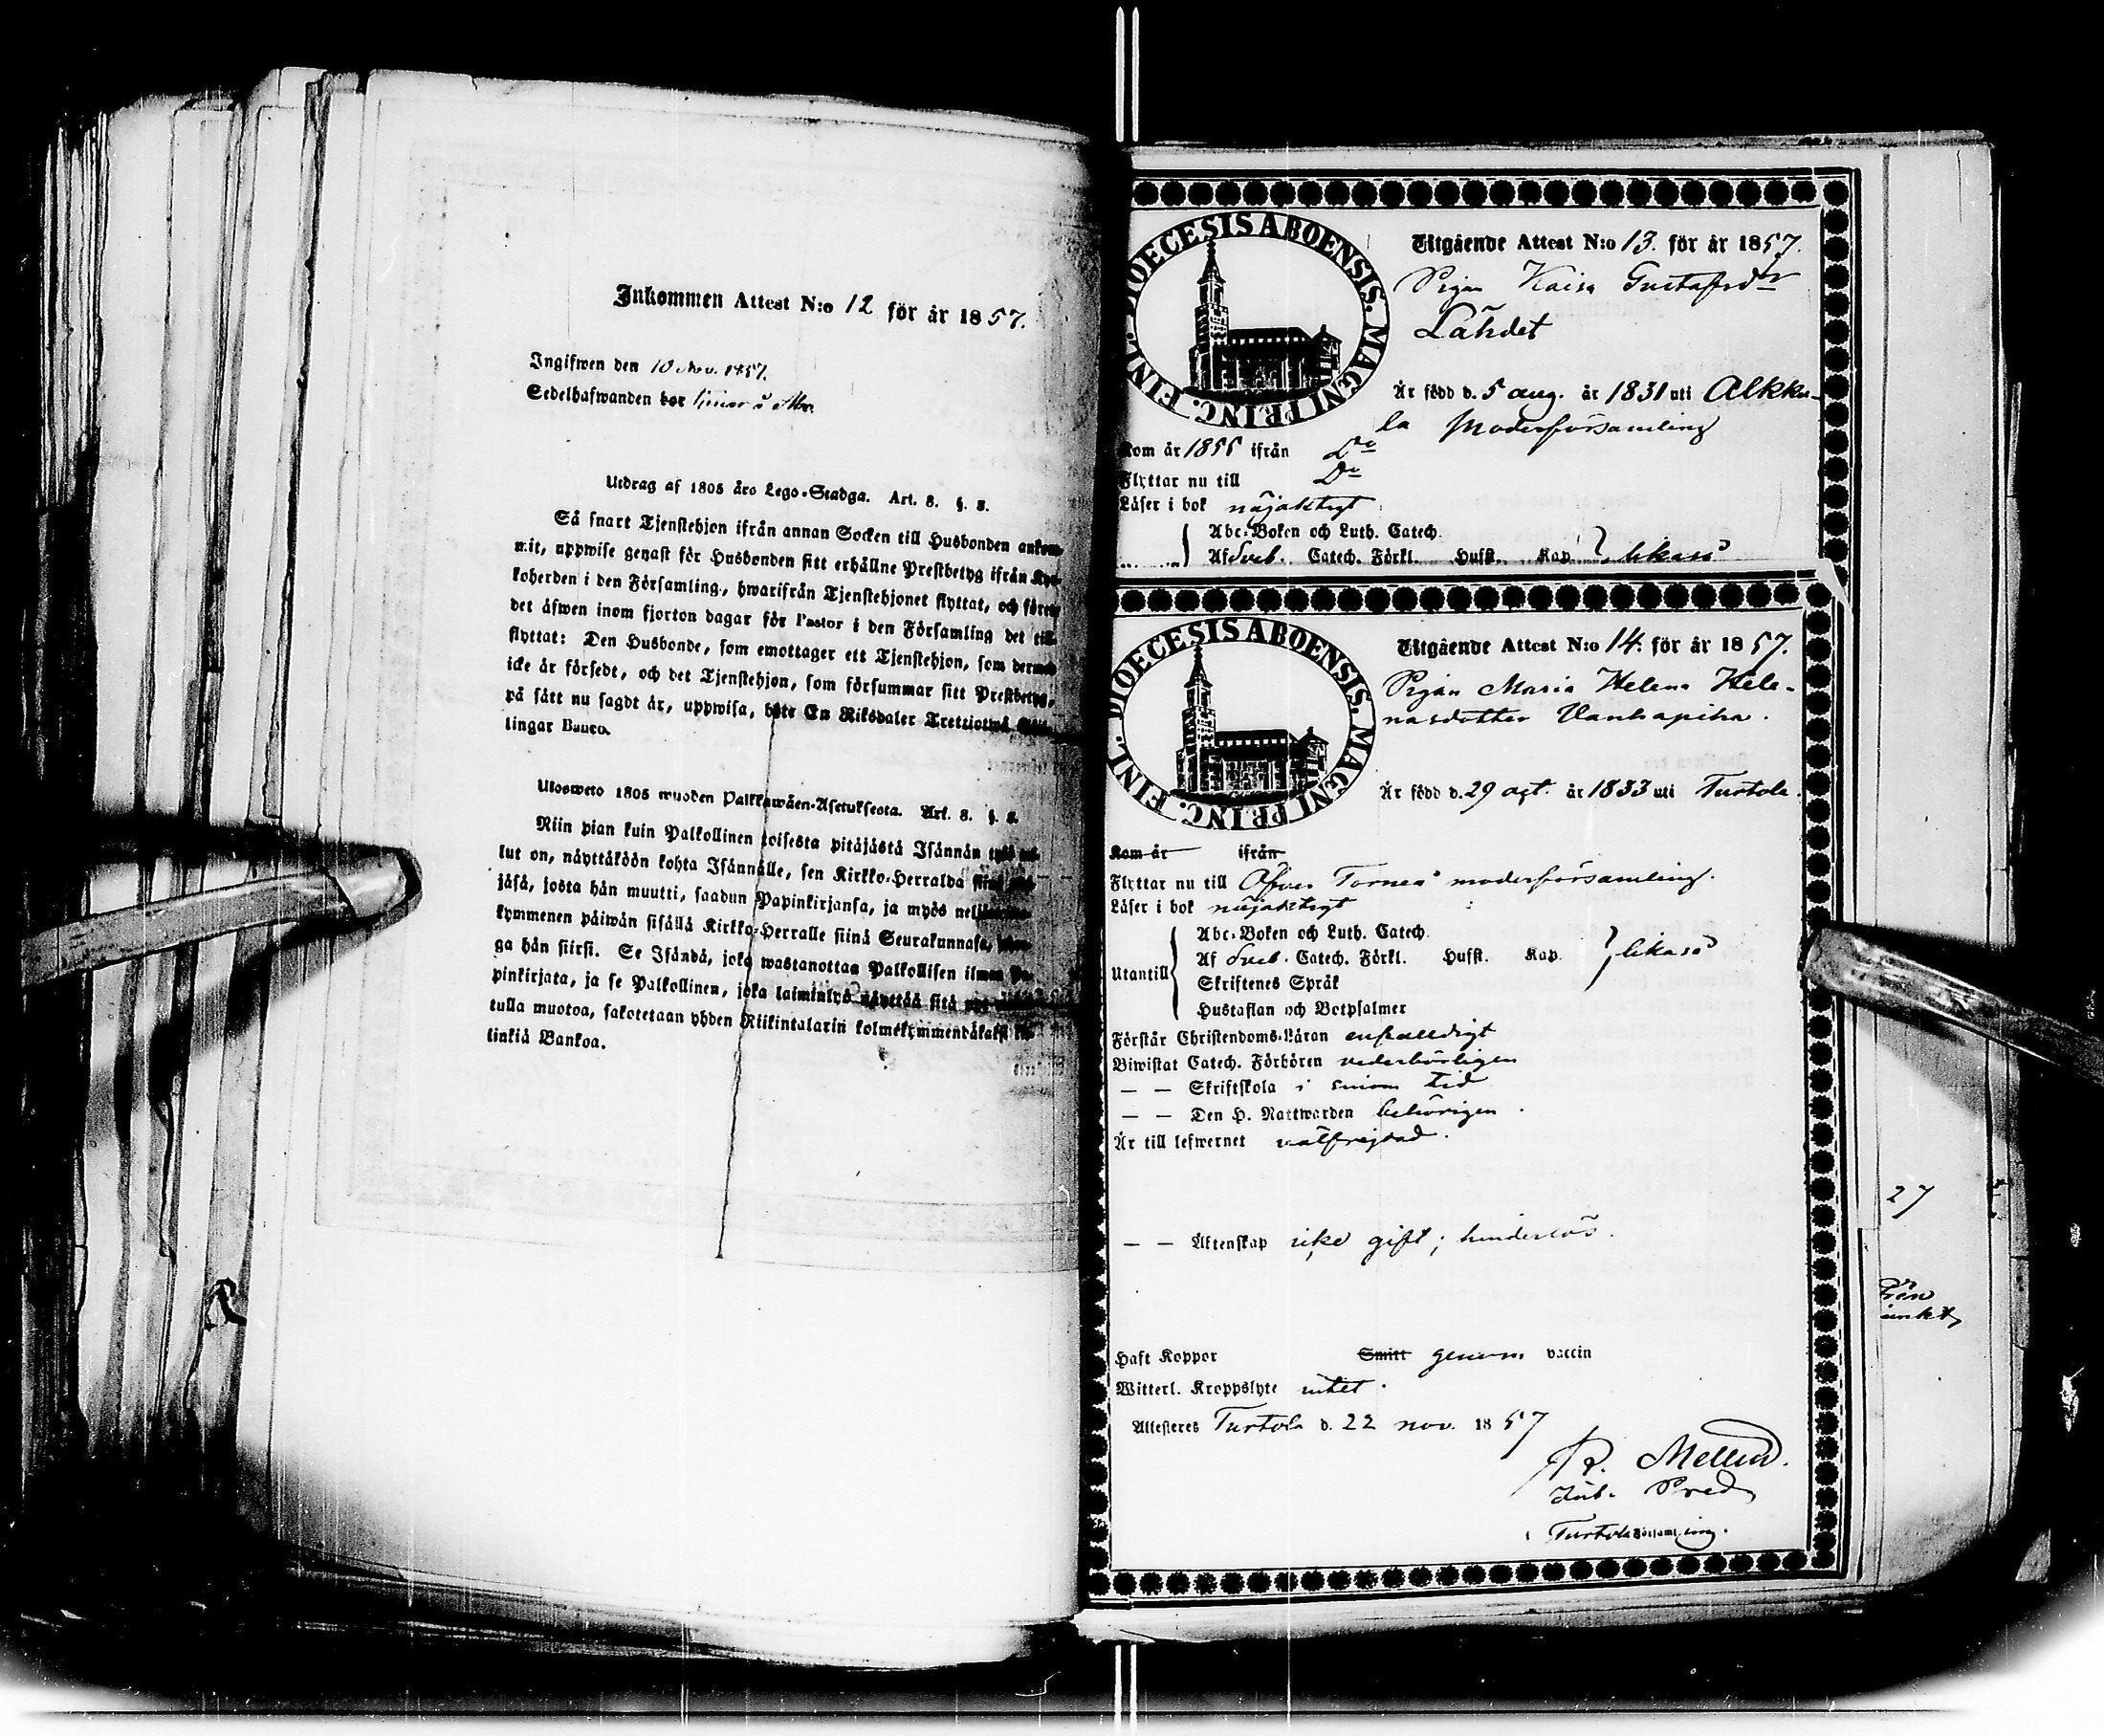 Inkommen Attest N:o 12 för år 1857.
Ingifwen den 10 Nov. 1857.
Sedelhafwanden bor
Utdrag af 1805 års Lego-Stadga. Art. 8. §. 2.
Så snart Tjenstehjon ifrån annan Socken till Husbonden ankom-
mit, uppwise genast för Husbonden sitt erhållne Prestbetyg ifrån Kyr-
koherden i den Församling, hwarifrån Tjenstehjonet flyttat, och förete
det äfwen inom fjorton dagar för Pastor i den Församling det till-
flyttat: Den Husbonde, som emottager ett Tjenstehjon, som dermed
icke är försedt, och det Tjenstehjon, som försummar sitt Prestbetyg,
på sätt nu sagdt är, uppwisa, böte En Riksdaler Trettiotwå Skil-
lingar Banco.
Ulosweto 1805 wuoden Palkkawäen-Asetuksesta. Art. 8. §. 2.
Niin pian kuin Palkollinen toisesta pitäjästä Isännän tygö tul-
lut on, näyttäköön kohta Isännälle, sen Kirkko-Herralda siinä
jäsä, josta hän muutti, saadun Papinkirjansa, ja myös neljäntoista-
kymmenen päiwän sisällä Kirkko-Herralle siinä Seurakunnasa, johon-
ga hän siirsi. Se Isändä, joka wastanottaa Palkollisen ilman Pa-
pinkirjata, ja se Palkollinen, joka laiminlyö näyttää sitä nyt
tulla muotoa, sakotetaan yhden Riikintalarin kolmekymmendäkaksi kil-
linkiä Bankoa.
FINL. DIOECESIS ABOENSIS. MAGNI PRINC.
Utgående Attest N:o 13. för år 1857.
Pigan Kaisa Gustafsdr
Lahdet
Är född d. 5 aug. år 1831 uti Alkku-
la Moderförsamling
Kom år 1856 ifrån Do
Flyttar nu till Do
Läser i bok nöjaktigt
Abc-Boken och Luth. Catech.
Af Sveb. Catech. Förkl. Husst. Kap. likaså
FINL. DIOECESIS ABOENSIS. MAGNI PRINC.
Utgående Attest N:o 14. för år 1857.
Pigan Maria Helena Hele-
nasdotter Vanhapiha.
Är född d. 29 oct. år 1833 uti Turtola.
Kom år ifrån
Flyttar nu till Öfver Torneå moderförsamling.
Läser i bok nöjaktigt
Abc-Boken och Luth. Catech.
Utantill Af Sveb. Catech. Förkl. Husst. Kap. likaså
Skriftenes Språk
Hustaflan och Botpsalmer
Förstår Christendoms-Läran enfaldigt
Biwistat Catech. Förhören vederbörligen
— — Skriftskola i sinom tid
— — Den H. Nattwarden behörigen.
Är till lefwernet välfrejdad.
— — Äktenskap icke gift; hinderlös.
Haft Koppor Smitt genom vaccin
Witterl. Kroppslyte intet.
Attesteres Turtola d. 22 nov. 1857
R. Mellin.
Pred
Turtola Församling.
27